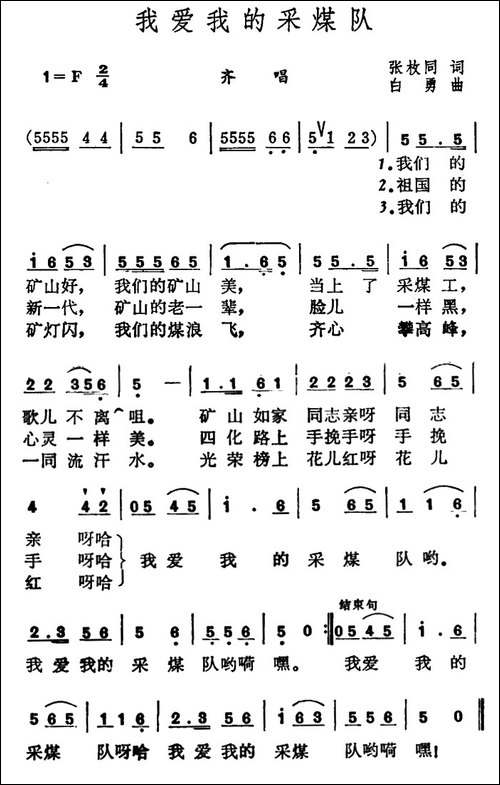 我爱我的采煤队
1=F 2/4 齐唱 张枚同 词
白勇 曲
(5555 4 4 | 5 5 6 | 5555 6 6 | 5 1 2 3) | 5 5 . 5
1.我们 的
2.祖国 的
3.我们 的
i 6 5 3 | 5 5 5 6 5 | 1 . 6 5 | 5 5 . 5 | i 6 5 3 |
矿山好, 我们的矿山 美, 当上 了 采煤 工,
新一代, 矿山的老一 辈, 脸儿 一样 黑,
矿灯闪, 我们的煤浪 飞, 齐心 攀高 峰,
2 2 3 5 6 | 5 — | 1 . 1 6 1 | 2 2 2 3 | 5 6 5 |
歌儿 不 离 咀。 矿 山 如家 同志亲呀 同 志
心灵 一样 美。 四 化 路上 手挽手呀 手 挽
一同 流汗 水。 光 荣 榜上 花儿红呀 花 儿
4 4 2 | 0 5 4 5 | i . 6 | 5 6 5 | 1 1 6 |
亲 呀哈
手 呀哈 我 爱 我 的 采 煤 队 哟。
红 呀哈
2 . 3 5 6 | 5 6 | 5 5 6 | 5 0 :‖ 结束句 0 5 4 5 | i . 6 |
我 爱 我的 采 煤 队哟嗬 嘿。 我爱 我 的
5 6 5 | 1 1 6 | 2 . 3 5 6 | i 6 3 | 5 5 6 | 5 0 ‖
采煤 队呀哈 我 爱 我的 采煤 队哟嗬 嘿!